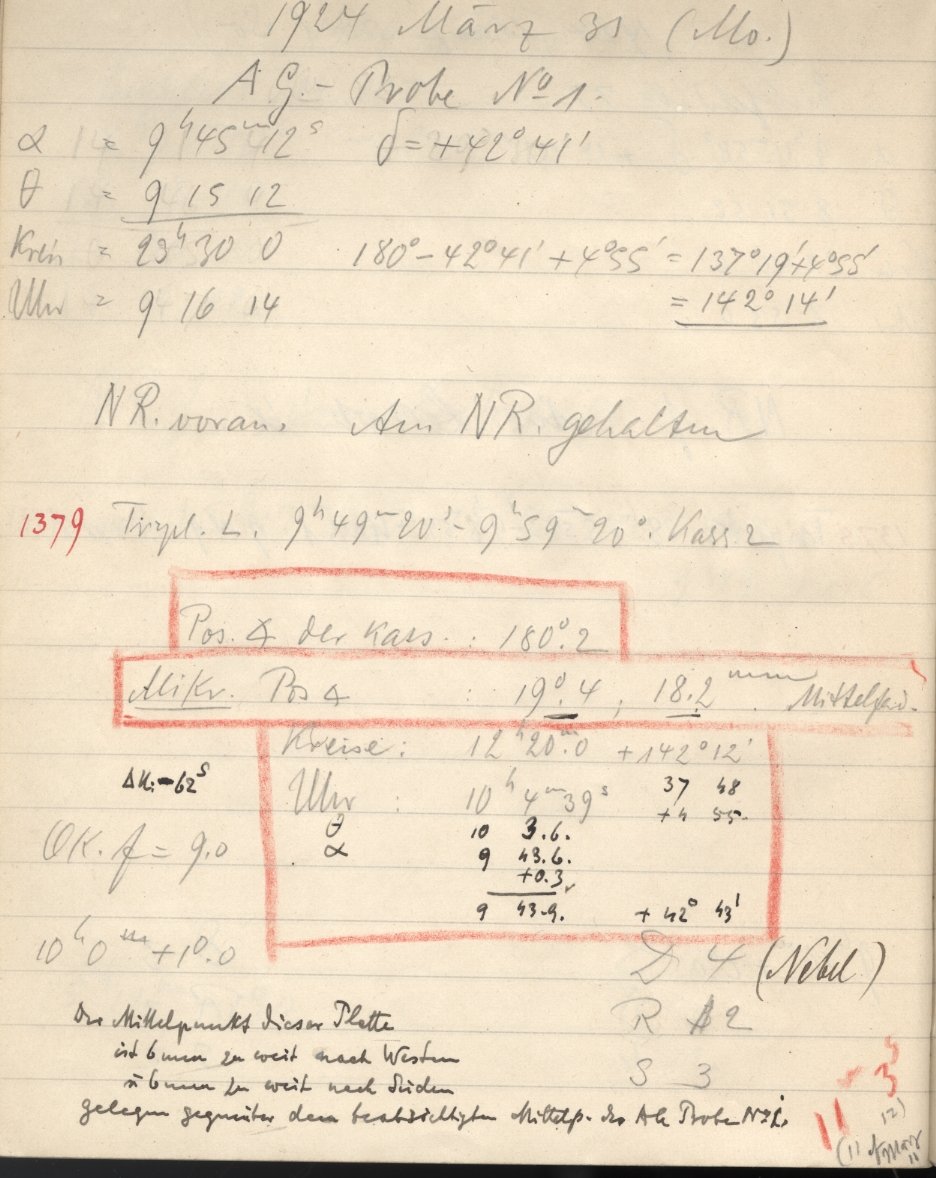 1924 März 31 (Mo.)
A.G.- Probe No 1.
α = 9h 45m 12s δ = +42° 41'
θ = 9 15 12
Kreis = 23h 30 0 180° - 42° 41' + 4° 55' = 137° 19' + 4° 55'
Uhr = 9 16 14 = 142° 14'
NR. voran. Am NR. gehalten
1379 Tripl. L. 9h 49m 20s - 9h 59m 20s. Kass 2
Pos. ∡ der Kass. : 180°.2
Mikr. Pos ∡ : 19°.4, 18.2 mm Mittelfad.
Kreise: 12h 20m.0 +142° 12'
ΔKi = -62s 37 48
Uhr : 10h 4m 39s +4 55
θ 10 3.6.
OK. f = 9.0 α 9 43.6.
+0.3
9 43.9. +42° 43'
10h 0m +1°.0 D 4 (Nebel)
Der Mittelpunkt dieser Platte R 2
ist 6 mm zu weit nach Westen
u 6 mm zu weit nach Süden S 3
gelegen gegenüber dem beabsichtigten Mittelp. der AG Probe No 1.
11 3